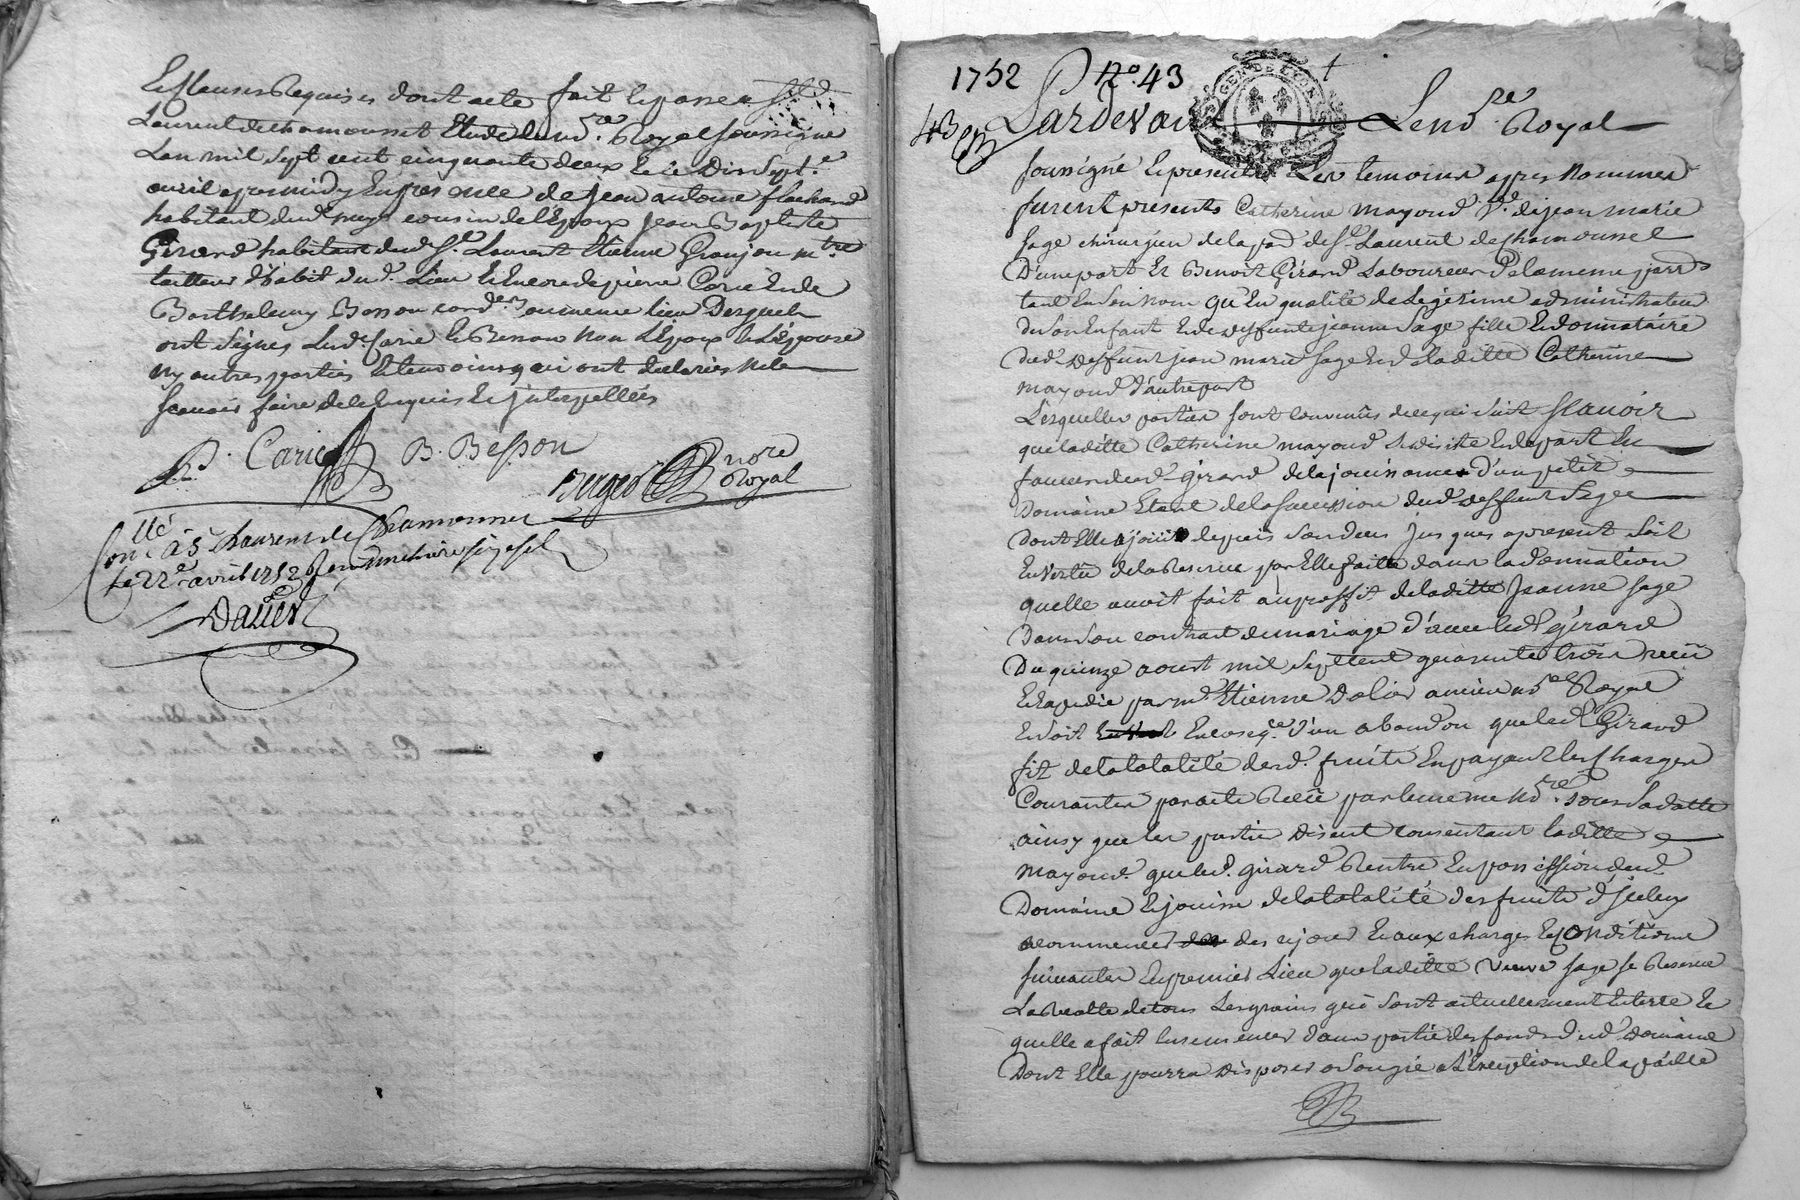 Et clauses Requises dont acte fait et passé a St
Laurent de chamousset Etude du no.re Royal soussigné
L'an mil sept cent cinquante deux et le Dix sept.e
avril apres midy En presence de jean antoine flachard
habitant dud. cousin de l'Epoux Jean Baptiste
Girard habitant dud. St. Laurent Etienne Granjon m.tre
tailleur d'habit dud. Lieu et Encore de pierre Carie Et de
Barthelemy Besson cord.er au meme lieu Desquels
ont signés Led. Carie et Besson Non L'Epoux et L'Epouse
ny autres parties et temoins qui ont declarés ne le
scavoir faire de ce Enquis et jnterpellés
P. Carie B. Besson
no.re Royal
Con.llé à St Laurent de Chamousset
le 22.e avril 1752
Dalier
1752 N.o 43
43
GEN DE LYON
Lardevau Le no.re Royal
soussigné et presents Les temoins apres Nommes
furent presents Catherine mayoud V.e de jean marie
sage chirurgien de la par. de St. Laurent de Chamousset
D'une part et Benoit Girard Laboureur de la meme parr.
tant En son nom qu'En qualité de Legitime administrateur
de son Enfant Et de deffunte jeanne Sage fille Et donnataire
dud. Deffunt jean marie sage Et de laditte Catherine
mayoud d'autre part
Lesquelles parties sont convenües de ce qui suit scavoir
que laditte Catherine mayoud se desiste Et depart En
faveur dud. Girard de la jouissance d'un petit
Domaine Etant de la succession dud. deffunt sage
dont Elle a jouit depuis son deces jusques apresent soit
En vertu de la Reserve par Elle faitte dans la donnation
quelle avoit fait au proffit de laditte Jeanne sage
Dans son contract de mariage d'avec led. Girard
Du quinze aoust mil sept cent quarante trois reçü
Et Expedie par m.e Etienne Dalier ancien no.re Royal
Et soit En conseq.ce d'un abandon que led. Girard
fit de la totalité desd. fruits En payant les Charges
Courantes par acte Reçü par le meme no.re sous sa datte
ainsy que les parties disent consentant laditte
mayoud que led. girard Rentre En possession dud.
Domaine Et jouisse de la totalité des fruits d'jceluy
a commencer des ce jour Et aux charges Et Conditions
suivantes En premier Lieu que laditte veuve sage se Reserve
La Recolte de tous Les grains qui sont actuellement En terre Et
quelle a fait Ensemencer dans partie des fonds dud. Domaine
Dont Elle pourra disposer a son gré a L'Exception de la paille